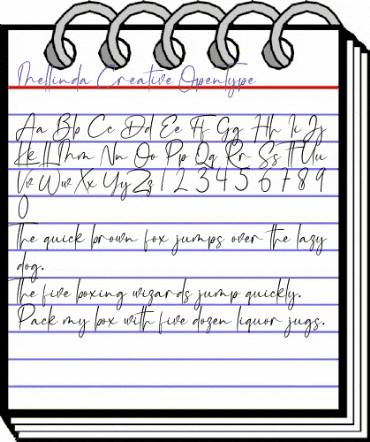 Thellinda Creative Opentype
Aa Bb Cc Dd Ee Ff Gg Hh Ii Jj
Kk Ll Mm Nn Oo Pp Qq Rr Ss Tt Uu
Vv Ww Xx Yy Zz 1 2 3 4 5 6 7 8 9
0
The quick brown fox jumps over the lazy
dog.
The five boxing wizards jump quickly.
Pack my box with five dozen liquor jugs.